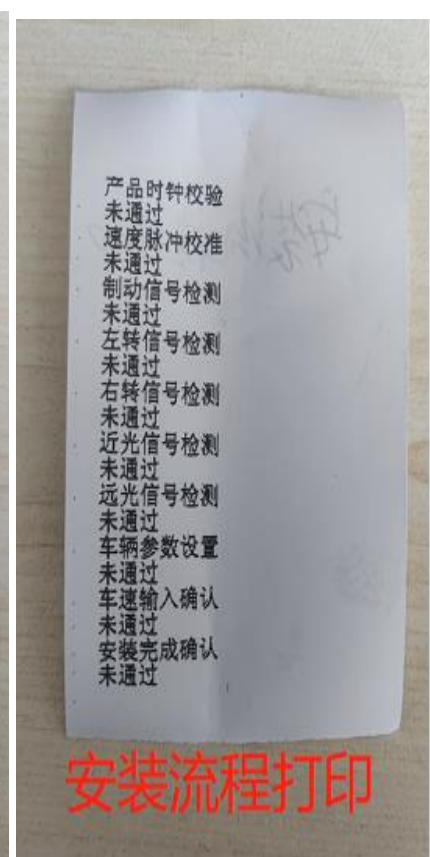 产品时钟校验
未通过
速度脉冲校准
未通过
制动信号检测
未通过
左转信号检测
未通过
右转信号检测
未通过
近光信号检测
未通过
远光信号检测
未通过
车辆参数设置
未通过
车速输入确认
未通过
安装完成确认
未通过
安装流程打印